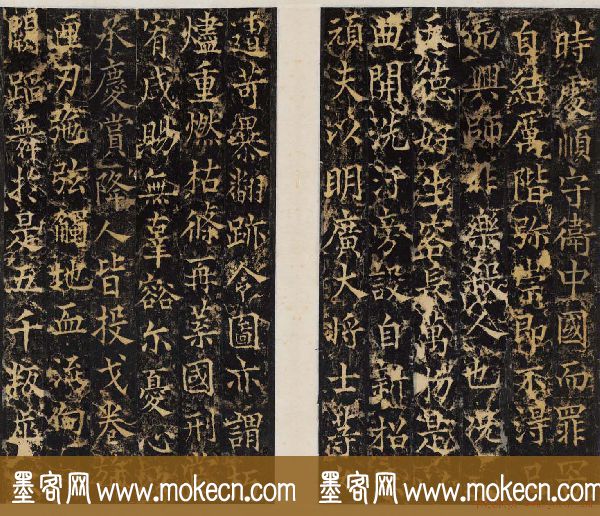 時順守衛中國而罪
自結厲階弥崇即不得
而興師非樂殺人也
德好生容長萬物是
曲開洗汙旁設自新招
頑夫以明廣大將士等
苛暴翻跡令圖亦謂
燼重燃枯條再榮國刑
宥咸賜無辜尔憂心
慶賞降人皆投戈卷
匣刃弛弦觸地血流匈
蹈舞於是五千叛
墨客网 www.mokecn.com 墨客网 www.mokecn.com